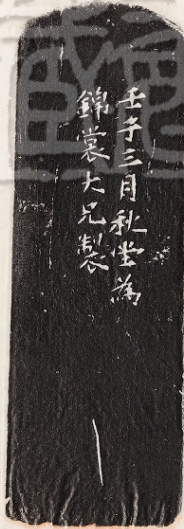 壬子三月秋堂為
錦裳大兄製